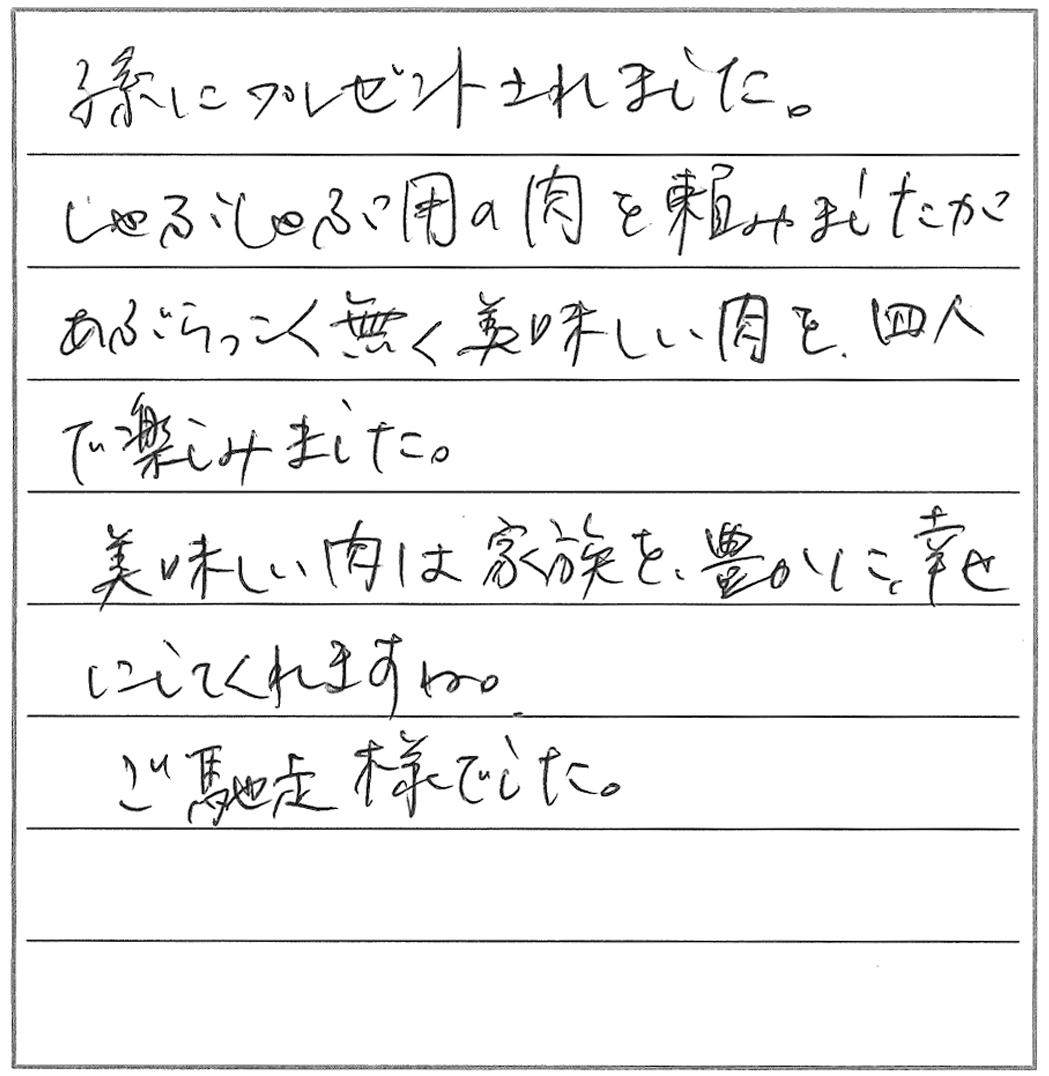 孫にプレゼントされました。
しゃぶしゃぶ用の肉を頼みましたが
あぶらっこく無く美味しい肉を、四人
で楽しみました。
美味しい肉は家族を、豊かに、幸せ
にしてくれますね。
ご馳走様でした。